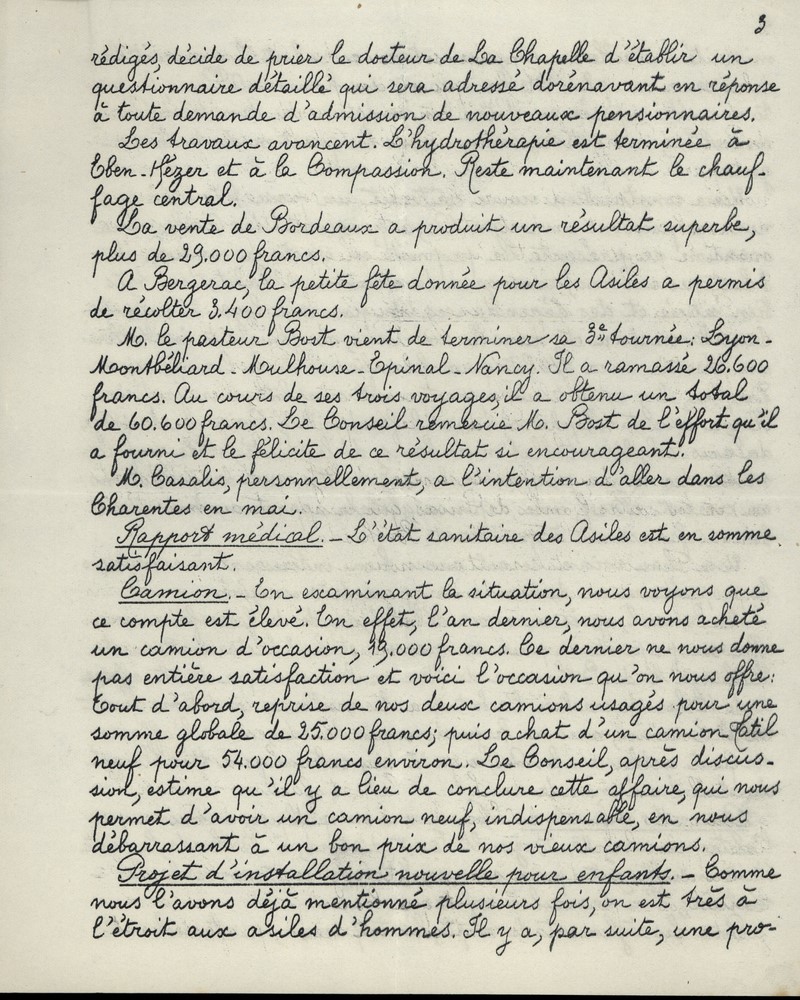 3
rédigés, décide de prier le docteur de La Chapelle d'établir un
questionnaire détaillé qui sera adressé dorénavant en réponse
à toute demande d'admission de nouveaux pensionnaires.
Les travaux avancent. L'hydrothérapie est terminée à
Eben-Hézer et à la Compassion. Reste maintenant le chauf-
fage central.
La vente de Bordeaux a produit un résultat superbe,
plus de 29.000 francs.
A Bergerac, la petite fête donnée pour les Asiles a permis
de récolter 3.400 francs.
M. le pasteur Bost vient de terminer sa 3e tournée: Lyon-
Montbéliard-Mulhouse-Epinal-Nancy. Il a ramassé 26.600
francs. Au cours de ses trois voyages, il a obtenu un total
de 60.600 francs. Le Conseil remercie M. Bost de l'effort qu'il
a fourni et le félicite de ce résultat si encourageant.
M. Casalis, personnellement, a l'intention d'aller dans les
Charentes en mai.
Rapport médical. - L'état sanitaire des Asiles est en somme
satisfaisant.
Camion. - En examinant la situation, nous voyons que
ce compte est élevé. En effet, l'an dernier, nous avons acheté
un camion d'occasion, 19.000 francs. Ce dernier ne nous donne
pas entière satisfaction et voici l'occasion qu'on nous offre:
tout d'abord, reprise de nos deux camions usagés pour une
somme globale de 25.000 francs; puis achat d'un camion Latil
neuf pour 54.000 francs environ. Le Conseil, après discus-
sion, estime qu'il y a lieu de conclure cette affaire, qui nous
permet d'avoir un camion neuf, indispensable, en nous
débarrassant à un bon prix de nos vieux camions.
Projet d'installation nouvelle pour enfants. - Comme
nous l'avons déjà mentionné plusieurs fois, on est très à
l'étroit aux asiles d'hommes. Il y a, par suite, une pro-